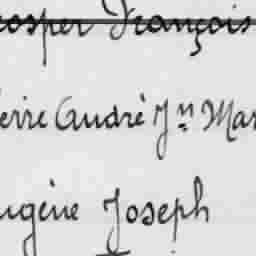 rosper François
ierre André Jn Mar
ugène Joseph